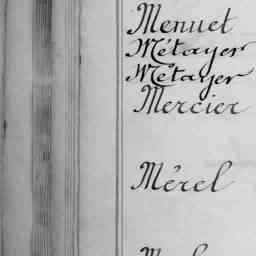 Menuet
Métayer
Métayer
Mercier
Mérel